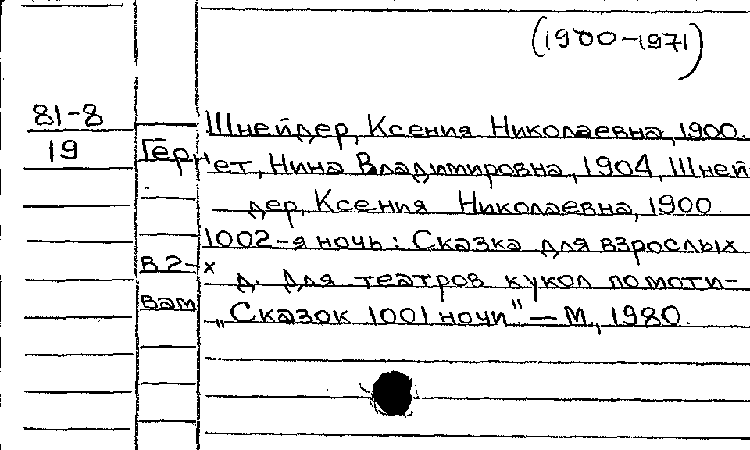 (1900-1971)
81-8
Шнейдер, Ксения Николаевна, 1900.
19 Гернет, Нина Владимировна, 1904, Шней
— дер, Ксения Николаевна, 1900
1002-я ночь: Сказка для взрослых
в 2-х д. для театров кукол по моти-
вам „Сказок 1001 ночи" — М, 1980.